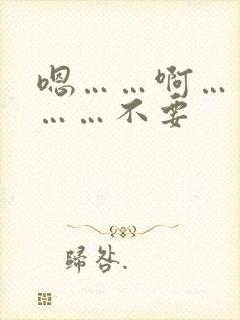 嗯……啊…
……不要
歸咎.